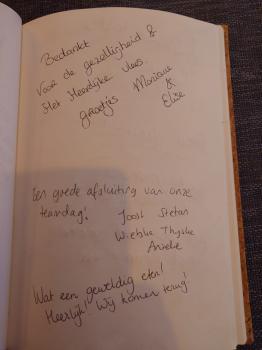 Bedankt
Voor de gezelligheid &
Het Heerlijke vlees.
groetjis Monique
&
Elise
Een goede afsluiting van onze
teamdag! Joost Stefan
Wiebke Thyske
Anneke
Wat een geweldig eten!
Heerlijk! Wij komen terug!